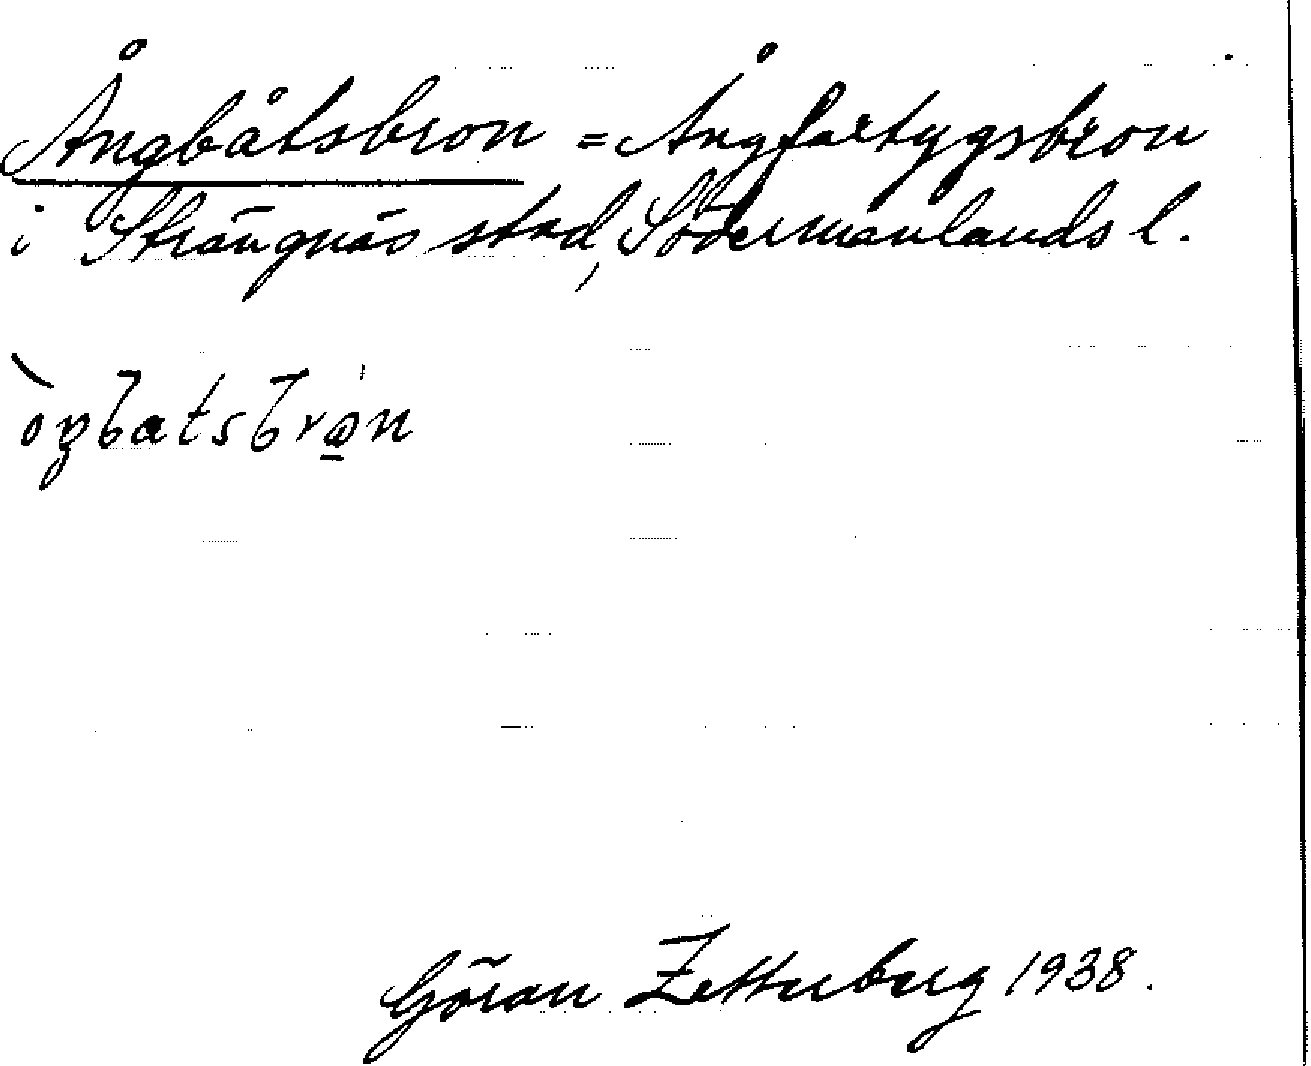 Ångbåtsbron = Ångfartygsbron
i Strängnäs stad, Södermanlands l.
Göran Zetterberg 1938.